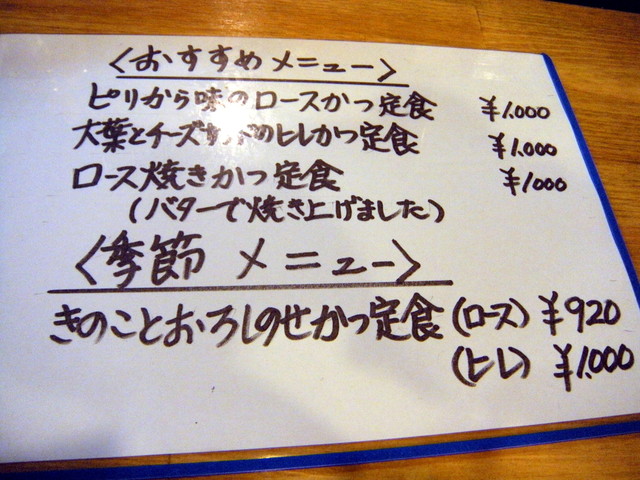 〈おすすめメニュー〉
ピリから味のロースかつ定食 ¥1.000
大葉とチーズサンドのヒレかつ定食 ¥1.000
ロース焼きかつ定食 ¥1000
(バターで焼き上げました)
〈季節 メニュー〉
きのことおろしのせかつ定食(ロース) ¥920
(ヒレ) ¥1.000